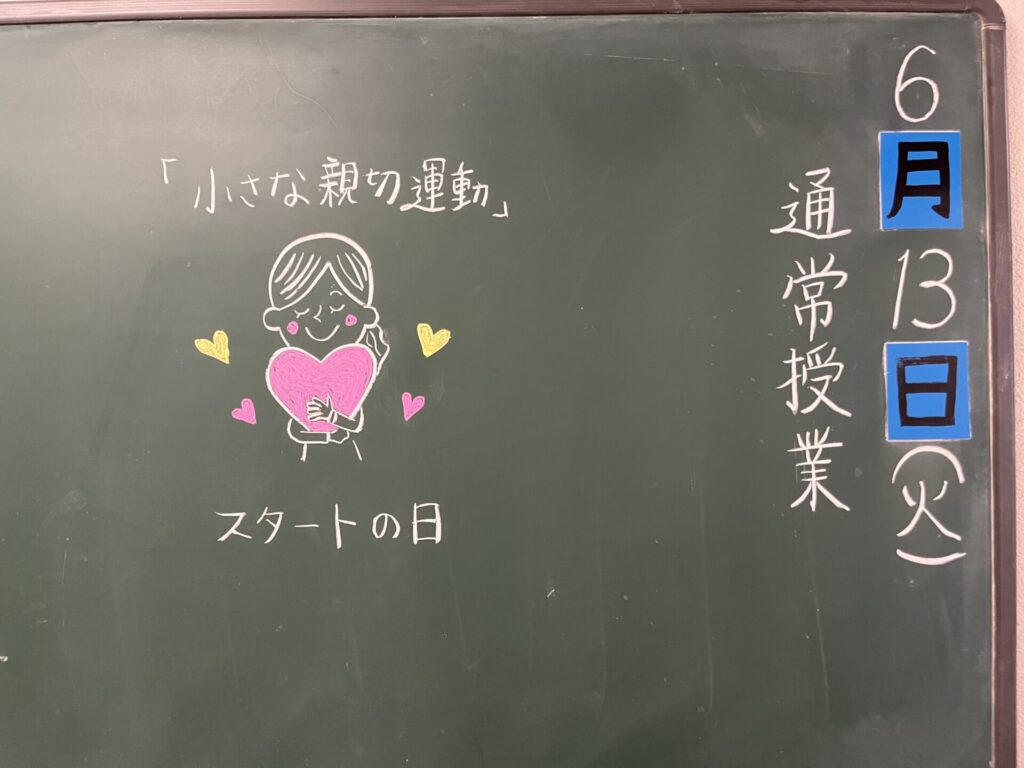 6月13日(火)
通常授業
「小さな親切運動」
スタートの日